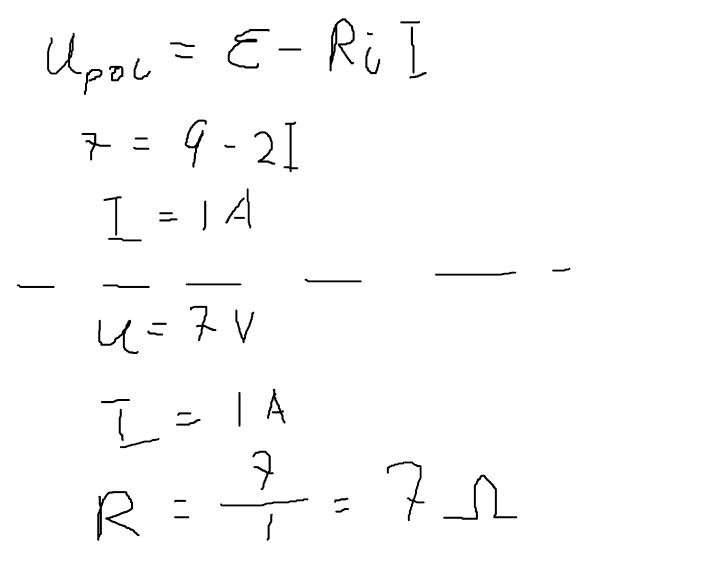 U_pol = ε - Ri I
7 = 9 - 2I
I = 1A
U = 7V
I = 1A
R = 7/1 = 7 Ω